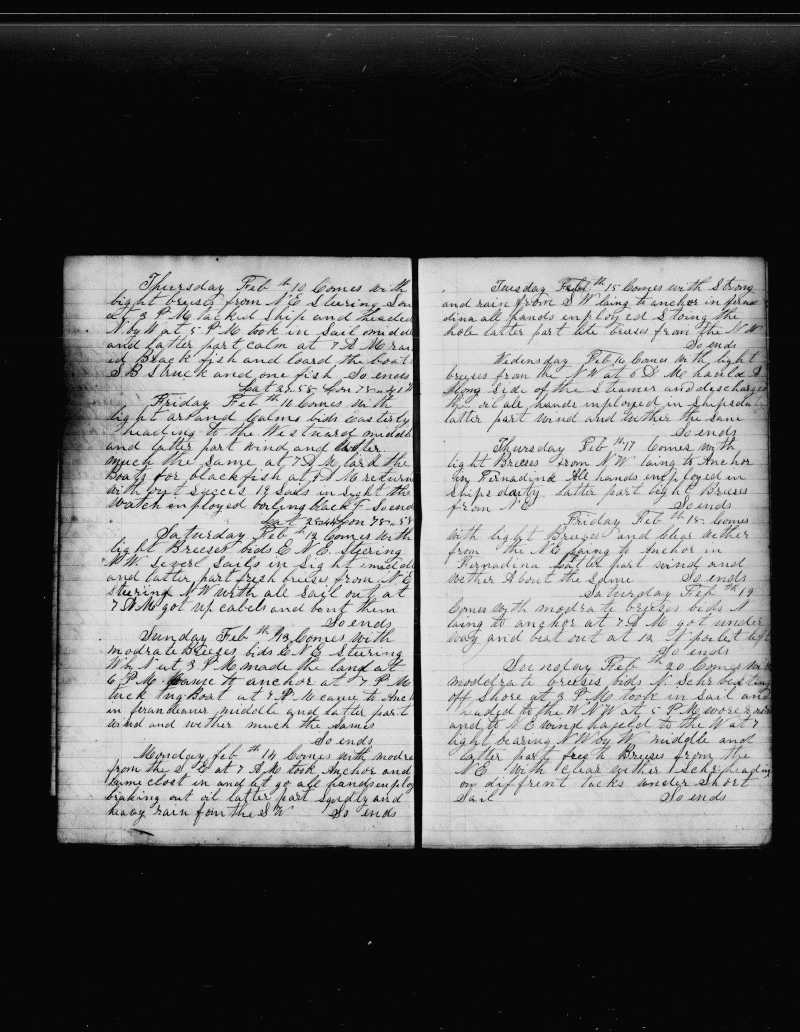 Thursday Feb th 10 Comes with
light breeses from N E Steering Sou
at 3 P M tacked Ship and headed
N by W at 5 P M took in Sail middle
and latter part calm at 7 A M rais
ed Black fish and loard the boats
S B Struck and one fish So ends
Lat 29-58 Lon 78-41
Friday Feb th 11 Comes with
light and Calms bids Easterly
heading to the Westward middle
and latter part wind and wether
much the same at 7 A M lard the
boats for blackfish at 9 A M return
with out succes 19 Sails in Sight the
watch imployed boiling So ends
Lat Lon 78-58
Saturday Feb th 12 Comes with
light Breeses bids E N E Steering
N W Severl Sails in Sight middle
and latter part fresh breese from N E
steering N W with all sail out at
7 A M got up cabels and bent them
So ends
Sunday Feb th 13 Comes with
modrate Breeses bids E N E Steering
W by N at 3 P M made the land at
6 P M Came to anchor at 7 P M
tuck tug Boat at 9 P M came to Anch
in firandeaner middle and latter part
wind and wether much the sames
So ends
Monday feb th 14 Comes with modra
from the S E at 7 A M took Anchor and
came clost in and let go all hands employ
braking out oil latter part Squdly and
heavy rain from the S W So ends
Tuesday Feb th 15 Comes with Strong
and rain from S W laing to anchor in ferna
dina all hands imployed Stoing the
hole latter part lite breses from the N W
So ends
Wedinsday Feb 16 Comes with light
breuses from the N W at 6 P M hauld A
long Side of the Steamer and descharged
the oil all hands inployed in Shipsduty
latter part wind and wether the same
So ends
Thursday Feb th 17 Comes with
light Breeses from N W laing to Anchor
in Fernadina All hands employed in
Ships dayty latter part light Breeses
from N E So ends
Friday Feb th 18 Comes
with light Breeses and Clear wether
from the N E laing to Anchor in
Fernadina latter part wind and
wether About the Same So ends
Saturday Feb th 19
Comes with modrate breeses bids N
laing to anchor at 7 A M got under
way and beat out at 12 N poilet left
So ends
Sunday Feb th 20 Comes with
modderate breeses bids N Schr beating
off Shore at 3 P M took in Sail and
headed to the W N W at 5 P M wore
and to N E wind hauled to the W at 7
light bearing N W by W middle and
latter part fresh Breeses from the
N E with clear wether Schr heading
on diffrent tacks under Short
Sail So ends